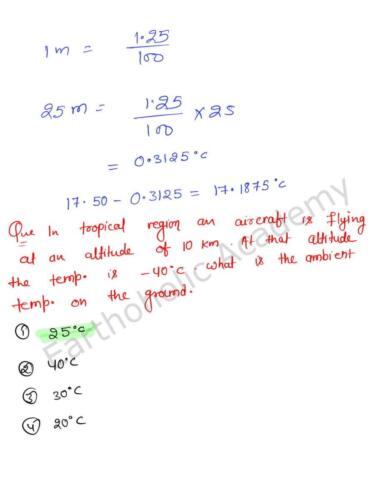 1 m = 1.25/100
25 m = 1.25/100 × 25
= 0.3125°C
17.50 - 0.3125 = 17.1875°C
Que In tropical region an aircraft is flying
at an altitude of 10 km. At that altitude
the temp. is -40°C what is the ambient
temp. on the ground.
① 25°C
② 40°C
③ 30°C
④ 20°C
Eartholholic Academy